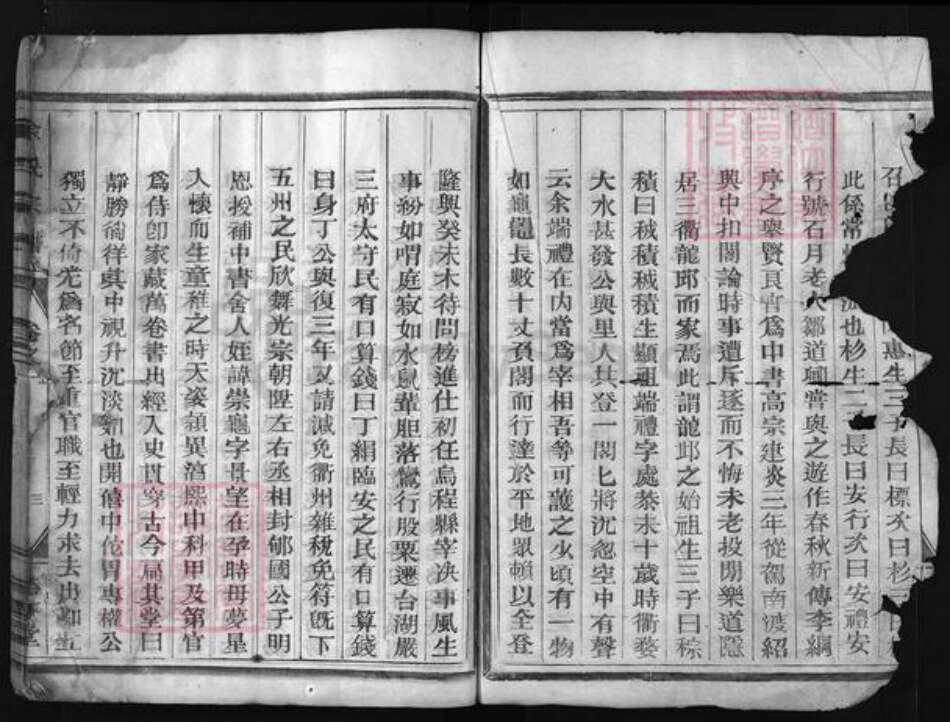 惠生三子長曰標次曰杉
此係常 也杉生二子長曰安行次曰安禮安
行號石月老人鄒道鄉嘗與之遊作春秋新傳李綱
序之舉賢良官爲中書高宗建炎三年從駕南渡紹
興中扣閽論時事遭斥逐而不悔未老投閒樂道隱
居三衢龍邱而家焉此謂龍邱之始祖生三子曰稌
積曰秫積秫積生顯祖端禮字處恭未十歲時衢婺
大水甚發公與里人共登一閣匕將沈忽空中有聲
云余端禮在內當爲宰相吾等可護之少頃有一物
如黿龍長數十丈負閣而行達於平地眾賴以全登
隆興癸未木待問榜進仕初任烏程縣宰决事風生
事紛如喟庭寂如水鼠輩胆落驚行股栗遷台湖嚴
三府太守民有口算錢曰丁絹臨安之民有口算錢
曰身丁公與復三年又請減免衢州雜稅免符旣下
五州之民欣舞光宗朝陞左右丞相封郇國公子明
恩授補中書舍人姪諱崇龜字景望在孕時母夢星
入懷而生童稚之時天姿穎異湻熙中科甲及第官
爲侍郎家藏萬卷書出經入史貫穿古今扁其堂曰
靜勝徜徉其中視升沉淡如也開禧中侂胄專權公
獨立不倚尤爲名節至重官職至輕力求去出知江